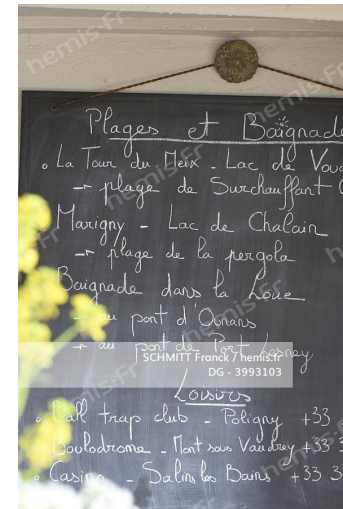 Plages et Baignade
• La Tour du Meix - Lac de Voug
→ plage de Surchauffant (
Marigny - Lac de Chalain
→ plage de la pergola
Baignade dans la Loue
→ au pont d'Ounans
→ au pont de Port Lesney
SCHMITT Franck / hemis.fr
DG - 3993103
Loisirs
• Ball trap club - Poligny +33
• Boulodrome - Mont sous Vaudrey +33 3
• Casino - Salins les Bains +33 3
hemis.fr